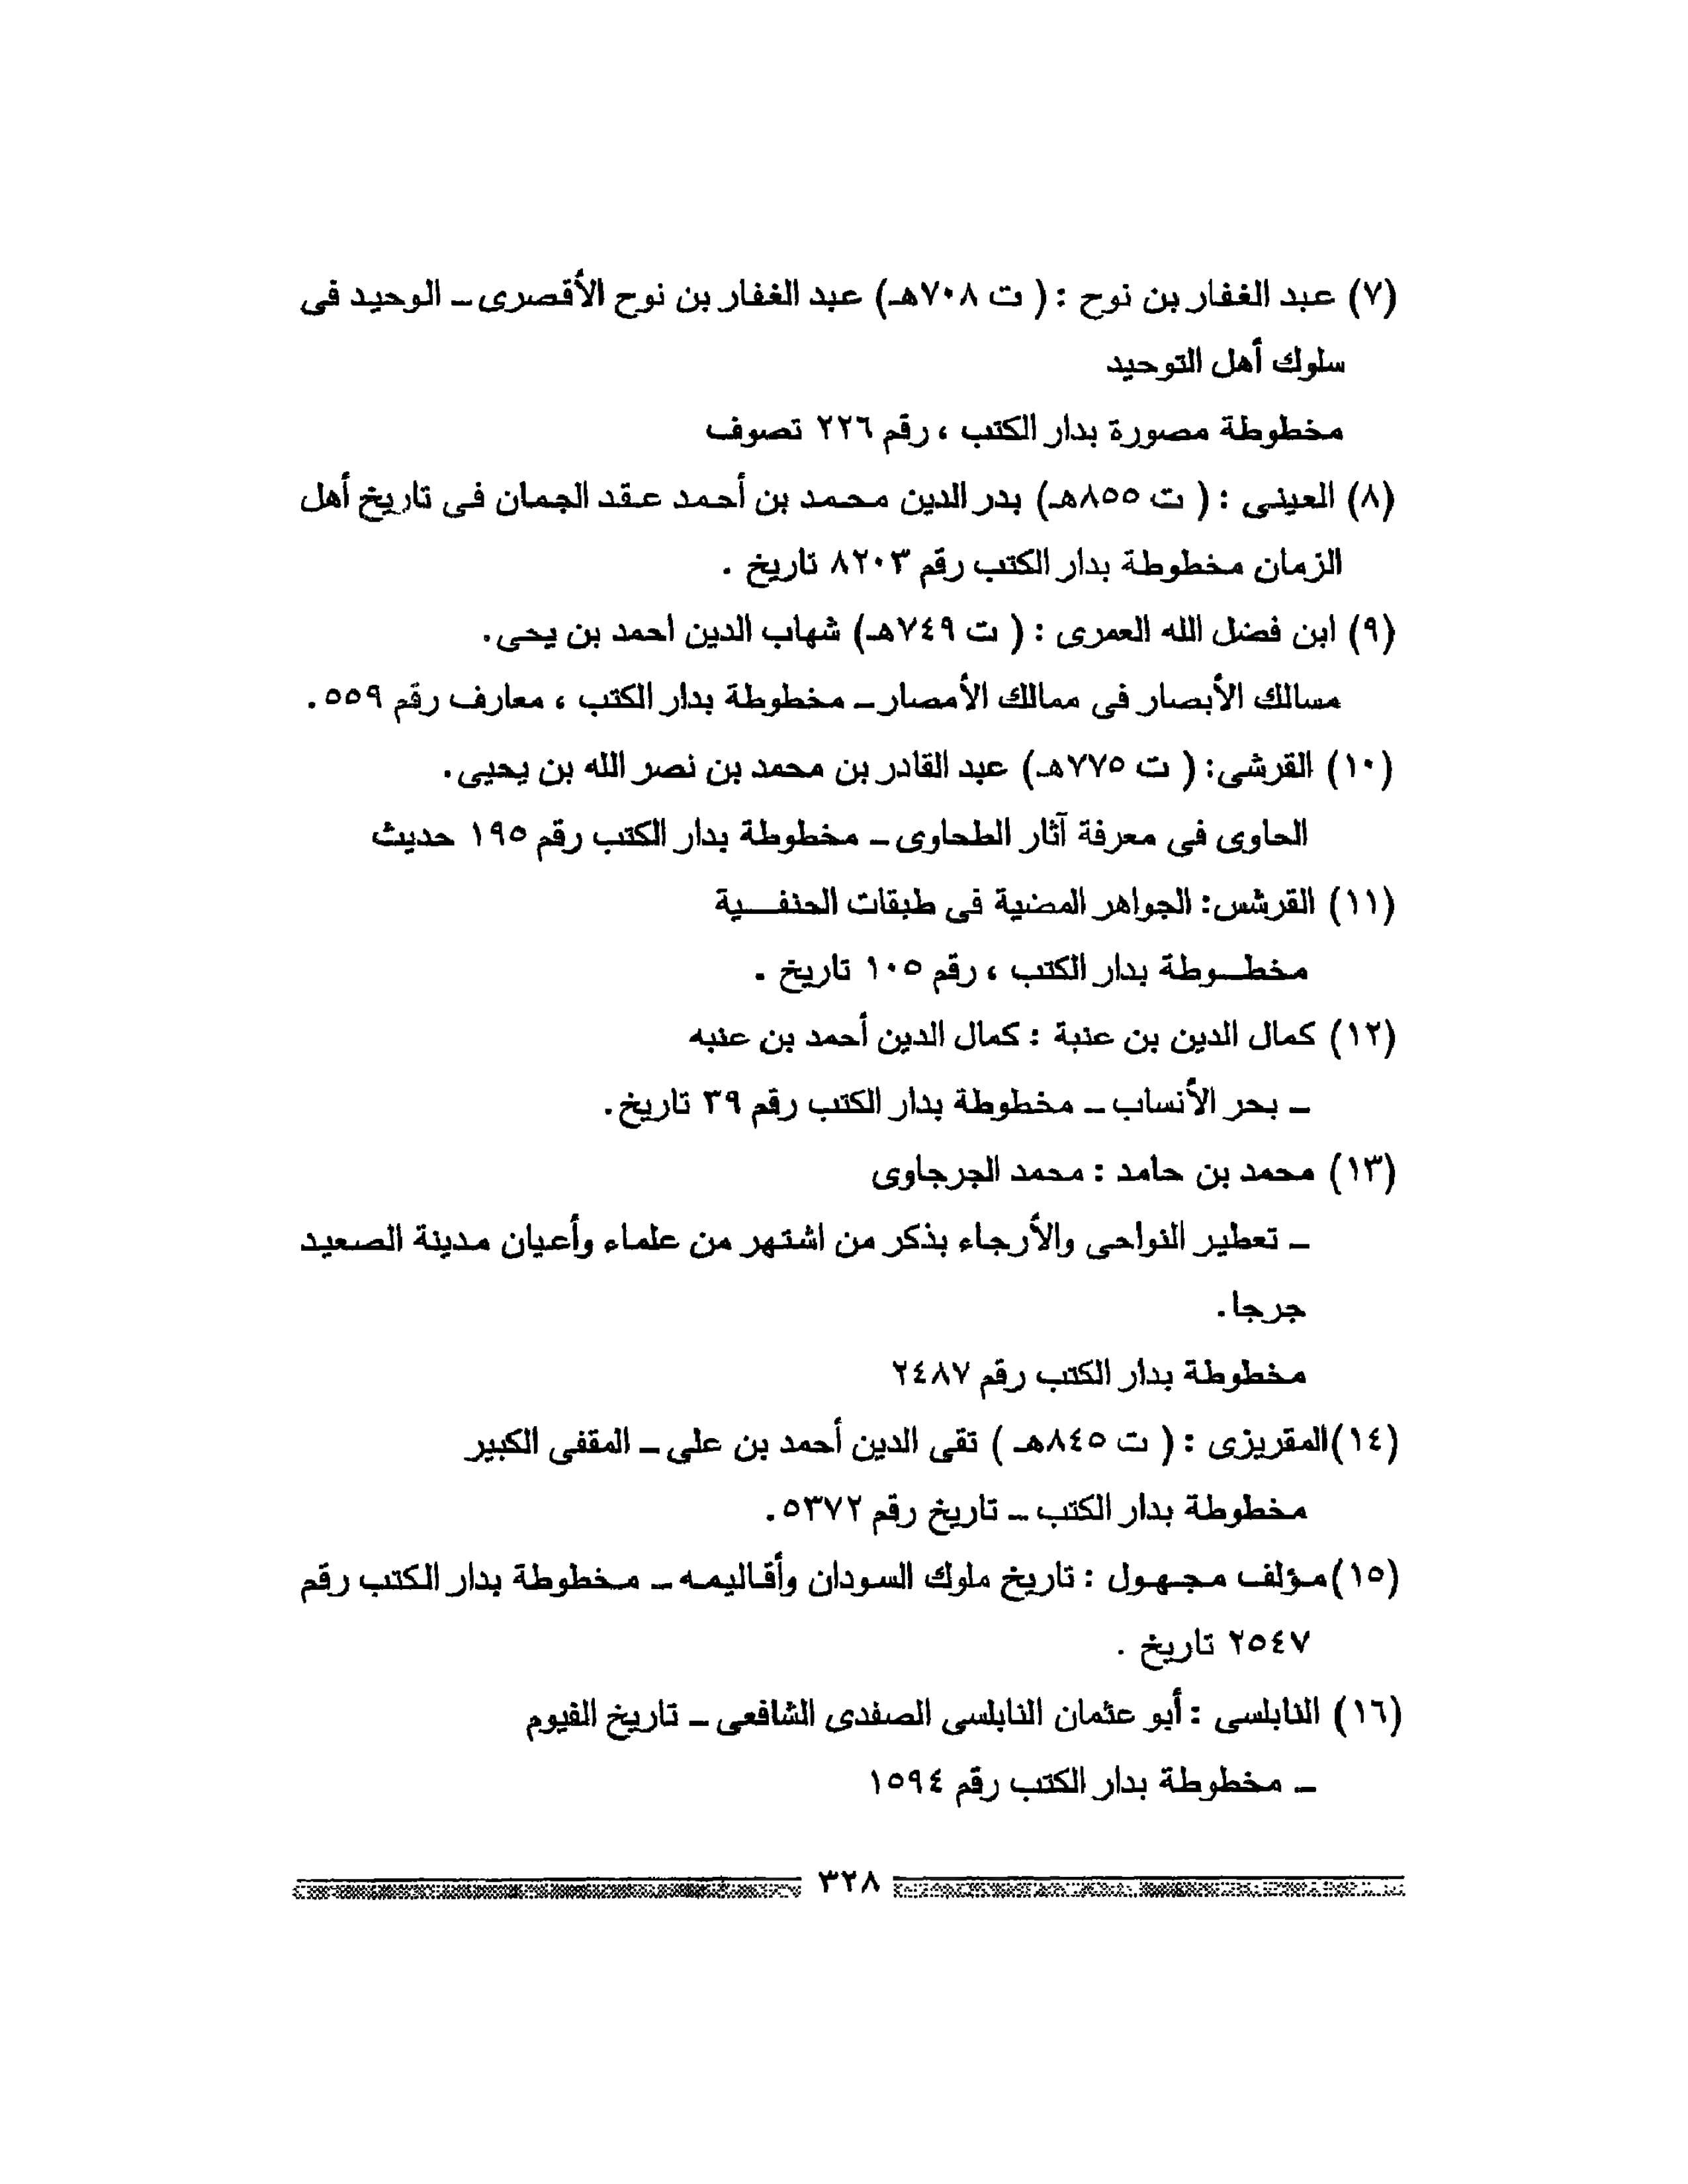 (٧) عبد الغفار بن نوح : ( ت ٧٠٨هـ) عبد الغفار بن نوح الأقصرى ــ الوحيد فى
سلوك أهل التوحيد
مخطوطة مصورة بدار الكتب ، رقم ٢٢٦ تصوف
(٨) العينى : ( ت ٨٥٥هـ) بدر الدين محمد بن أحمد عقد الجمان فى تاريخ أهل
الزمان مخطوطة بدار الكتب رقم ٨٢٠٣ تاريخ .
(٩) ابن فضل الله العمرى : ( ت ٧٤٩هـ) شهاب الدين احمد بن يحى.
مسالك الأبصار فى ممالك الأمصار ــ مخطوطة بدار الكتب ، معارف رقم ٥٥٩ .
(١٠) القرشى: ( ت ٧٧٥هـ) عبد القادر بن محمد بن نصر الله بن يحيى.
الحاوى فى معرفة آثار الطحاوى ــ مخطوطة بدار الكتب رقم ١٩٥ حديث
(١١) القرشس: الجواهر المضية فى طبقات الحنفـــية
مخطــوطة بدار الكتب ، رقم ١٠٥ تاريخ .
(١٢) كمال الدين بن عنبة : كمال الدين أحمد بن عنبه
ــ بحر الأنساب ــ مخطوطة بدار الكتب رقم ٣٩ تاريخ.
(١٣) محمد بن حامد : محمد الجرجاوى
ــ تعطير النواحى والأرجاء بذكر من اشتهر من علماء وأعيان مدينة الصعيد
جرجا.
مخطوطة بدار الكتب رقم ٢٤٨٧
(١٤)المقريزى : ( ت ٨٤٥هـ ) تقى الدين أحمد بن على ــ المقفى الكبير
مخطوطة بدار الكتب ــ تاريخ رقم ٥٣٧٢.
(١٥)مؤلف مجهول : تاريخ ملوك السودان وأقاليمه ــ مخطوطة بدار الكتب رقم
٢٥٤٧ تاريخ .
(١٦) النابلسى : أبو عثمان النابلسى الصفدى الشافعى ــ تاريخ الفيوم
ــ مخطوطة بدار الكتب رقم ١٥٩٤
٣٢٨